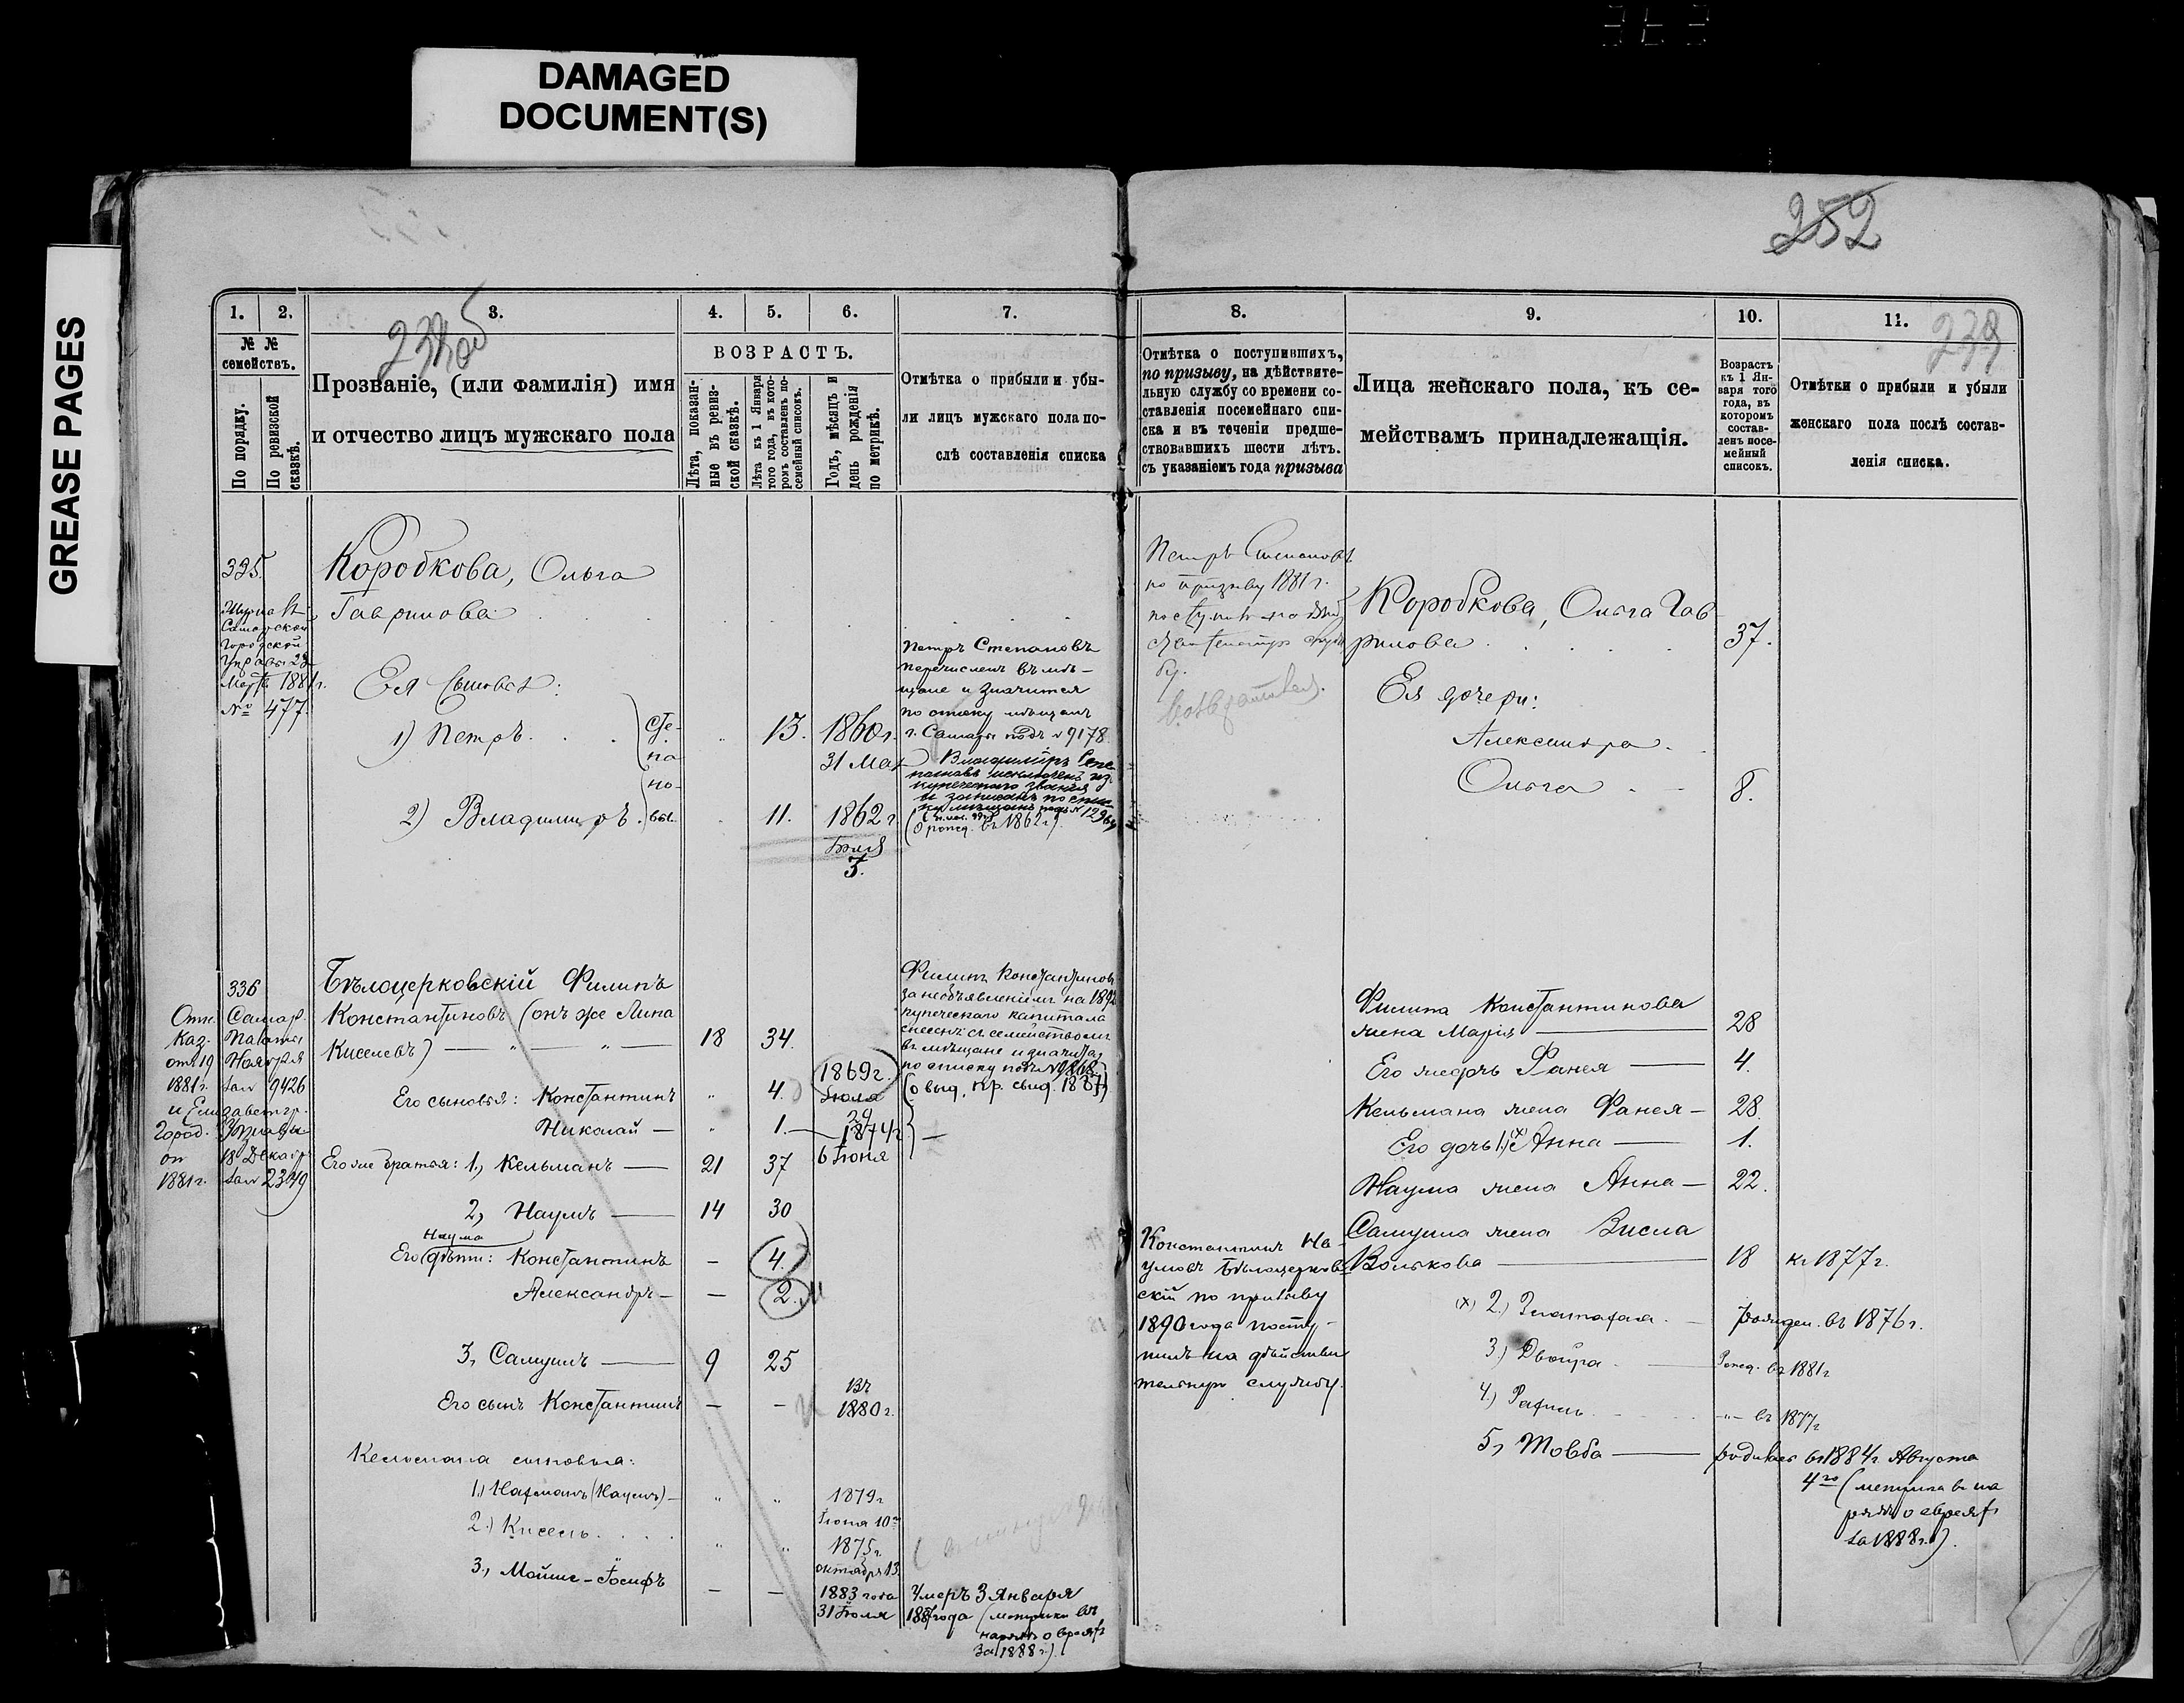 DAMAGED
DOCUMENT(S)
GREASE PAGES
252
238об
239
1.
2.
3.
4.
5.
6.
7.
№ №
семействъ.
По порядку.
По ревизской
сказкѣ.
Прозваніе, (или фамилія) имя
и отчество лицъ мужскаго пола
ВОЗРАСТЪ.
Лѣта, показан-
ные въ ревиз-
ской сказкѣ.
Лѣта къ 1 Января
того года, въ кото-
ромъ составленъ по-
семейный списокъ.
Годъ, мѣсяцъ и
день рожденія
по метрикѣ.
Отмѣтка о прибыли и убы-
ли лицъ мужскаго пола по-
слѣ составленія списка
335.
Самарской
Городской
Управы 28
Марта 1881 г.
№ 477.
Коробкова, Ольга
Гаврилова
Ея сыновья:
1) Петръ
Сте-
па-
но-
вы.
13.
1860 г.
31 Мая
2) Владимиръ
11.
1862 г.
Іюля
3.
Петръ Степановъ
перечисленъ въ мѣ-
щане и значится
по списку мѣщанъ
г. Самары подъ № 9178.
Владиміръ Сте
пановъ исключенъ из
купеческаго званія
и записанъ по спис
(о рожд. въ 1862 г.)
336
Отн. Самар.
Каз. Палаты
отъ 19 Ноября
1881 г. за № 9426
и Елизаветгр.
Город. Управы
от 18 Декабр
1881 г. за № 2349
Бѣлоцерковскій Филипъ
Константиновъ (онъ же Липа
Киселевъ)
18
34.
Его сыновья: Константинъ
4.
1869 г.
Іюля
29
Николай
1.
1874 г.
6 Іюня
Его же братья: 1, Кельманъ
21
37
2, Наумъ
14
30
Наума
Его дѣти: Константинъ
4.
Александръ
2.
3, Самуилъ
9
25
Его сынъ Константинъ
Въ
1880 г.
Кельмана сыновья:
1.) Нафманъ (Наумъ)
1879 г
Іюня 10го
2.) Кисель
1875 г.
октября 13.
3, Мойше-Іосифъ
1883 года
31 Іюля
Филипъ Константиновъ
за необъявленіемъ на 1892
купеческаго капитала
снесенъ съ семействомъ
въ мѣщане и значится
по списку подъ № 9868.
Умеръ 3 Января
(метрики въ
нарядѣ о евреяхъ
за 1888 г.)
8.
9.
10.
11.
Отмѣтка о поступившихъ,
по призыву, на дѣйствите-
льную службу со времени со-
ставленія посемейнаго спи-
ска и въ теченіи предше-
ствовавшихъ шести лѣтъ.
съ указаніемъ года призыва
Лица женскаго пола, къ се-
мействамъ принадлежащія.
Возрастъ
къ 1 Ян-
варя того
года, въ
которомъ
состав-
ленъ посе-
мейный
списокъ.
Отмѣтки о прибыли и убыли
женскаго пола послѣ состав-
ленія списка.
Петръ Степановъ
по призыву 1881 г.
Коробкова, Ольга Гав
рилова
37.
Ея дочери:
Александра
Ольга
8.
Филипа Константинова
жена Марія
28
Его же дочь Фанея
4.
Кельмана жена Фанея
28.
Его дочь 1.) (х) Анна
1.
Наума жена Анна
22.
Самуила жена Висла
Волькова
18
къ 1877 г.
(х) 2.)
рожден. въ 1876 г.
3.) Двойра
Рожд. въ 1881 г
4.) Рафиль
-"- въ 1877 г
5, Товба
родилась въ 1884 г. Августа
4го (метрика въ на
рядѣ о евреяхъ
за 1888 г.).
Константинъ На
умовъ Бѣлоцерков
скій по призыву
1890 года посту-
пилъ на дѣйстви
тельную службу.